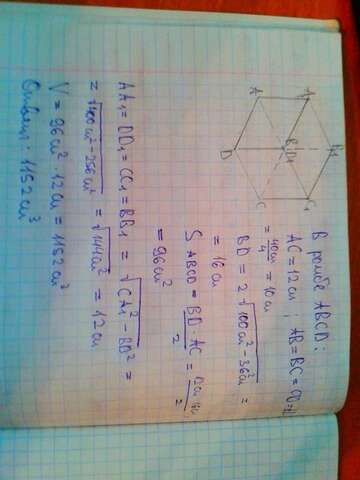 A A₁
D B D₁ B₁
C C₁
В ромбе ABCD:
AC = 12 см ; AB = BC = CD =
= 40см/4 = 10 см
BD = 2√(100см² - 36см²) =
= 16 см
S ABCD = BD · AC / 2 =
= 96см²
AA₁ = DD₁ = CC₁ = BB₁ = √(CA₁² - BD²) =
= √(400см² - 256см²) = √(144см²) = 12 см
V = 96см² · 12см = 1152 см³
Ответ: 1152 см³